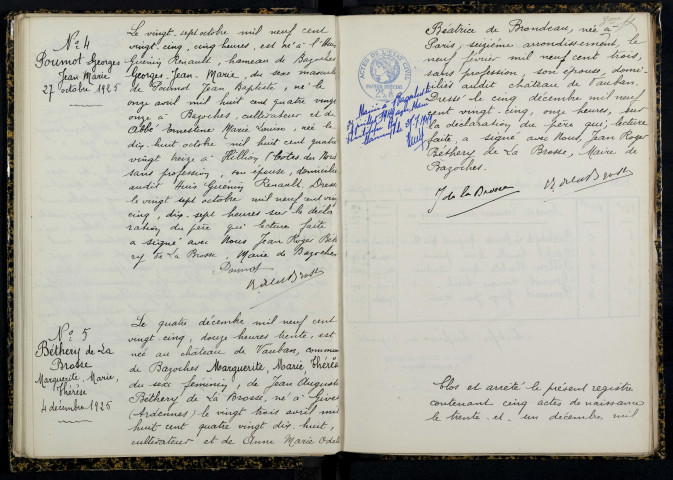 N° 4
Doumot Georges
Jean Marie
27 octobre 1925
Le vingt-sept octobre mil neuf cent
vingt-cinq, cinq heures, est né à l'Huis
Guénin Renault, hameau de Bazoches
Georges-Jean-Marie, du sexe masculin
de Doumot Jean Baptiste, né le
onze avril mil huit cent quatre vingt
onze à Bazoches, cultivateur et de
Abbé Ernestine Marie Louise, née le
dix-huit octobre mil huit cent quatre
vingt treize à Hillion (Côtes du Nord
sans profession, son épouse, domiciliés
audit Huis Guénin Renault. Dressé
le vingt sept octobre mil neuf cent vingt
cinq, dix-sept heures sur la décla
ration du père qui lecture faite
a signé avec Nous Jean Roger Béth
ery de La Brosse, Maire de Bazoches
Doumot
N° 5
Béthery de La
Brosse
Marguerite, Marie,
Thérèse
4 décembre 1925
Le quatre décembre mil neuf cent
vingt cinq, douze heures trente, est
née au château de Vauban, commune
de Bazoches Marguerite, Marie, Thérèse
du sexe féminin, de Jean Auguste
Béthery de La Brosse, né à Givet
(Ardennes) le vingt trois avril mil
huit cent quatre vingt dix-huit,
cultivateur et de Anne Marie Odette
Béatrice de Brondeau, née à
Paris, seizième arrondissement, le
neuf février mil neuf cent trois,
sans profession son épouse, domi-
ciliés audit château de Vauban.
Dressé le cinq décembre mil neuf
cent vingt-cinq, onze heures, sur
la déclaration du père qui, lecture
faite, a signé avec Nous, Jean Roger
Béthery de La Brosse, Maire de
Bazoches.
J de la Brosse
ACTES DE L'ETAT CIVIL
Clos et arrêté le présent registre
contenant cinq actes de naissance
le trente-et-un décembre mil